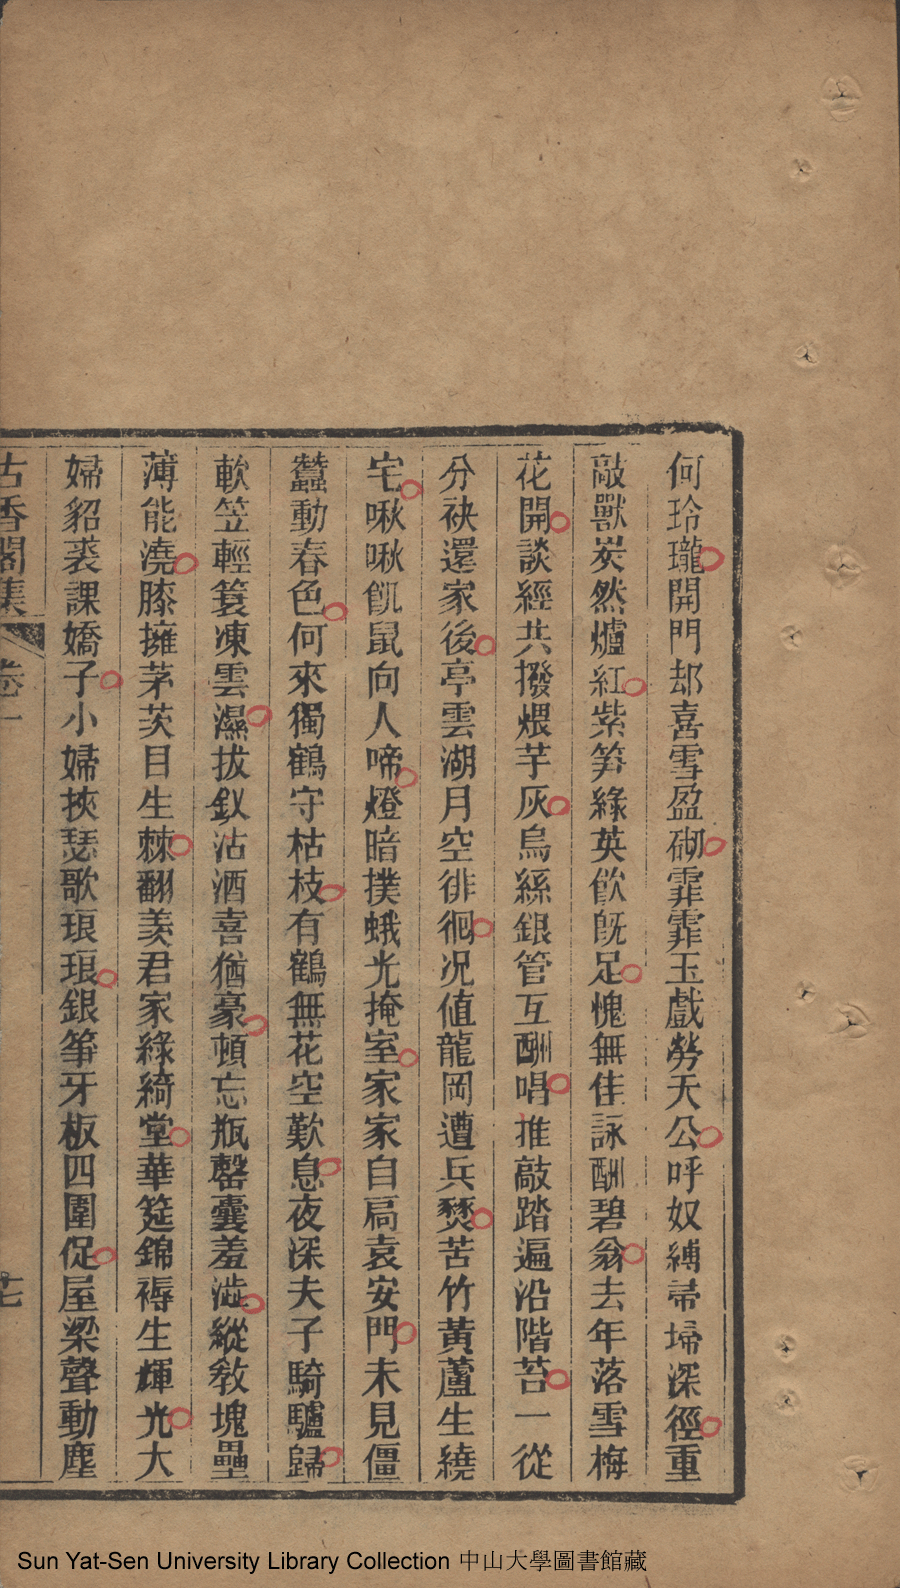 何玲瓏開門却喜雪盈砌霏霏玉戲勞天公呼奴縛帚埽深徑重
敲獸炭然爐紅紫笋綠英飲既足愧無佳詠酬碧翁去年落雪梅
花開談經共撥煨芋灰烏絲銀管互酬唱推敲踏遍沿階苔一從
分袂還家後亭雲湖月空徘徊况值龍岡遭兵燹苦竹黃蘆生繞
宅啾啾飢鼠向人啼燈暗撲蛾光掩室家家自扃袁安門未見僵
蠶動春色何來獨鶴守枯枝有鶴無花空歎息夜深夫子騎驢歸
軟笠輕簑凍雲濕拔釵沽酒喜猶豪頓忘瓶罄囊羞澁縱教塊壘
薄能澆膝擁茅茨目生棘翻羨君家綠綺堂華筵錦褥生輝光大
婦貂裘課嬌子小婦挾瑟歌琅琅銀箏牙板四圍促屋梁聲動塵
古香閣集 卷一 十七
Sun Yat-Sen University Library Collection 中山大學圖書館藏